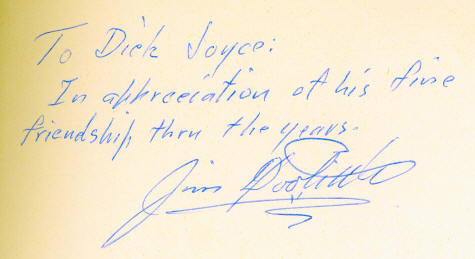 To Dick Joyce:
In appreciation of his fine
friendship thru the years.
Jim Doolittle